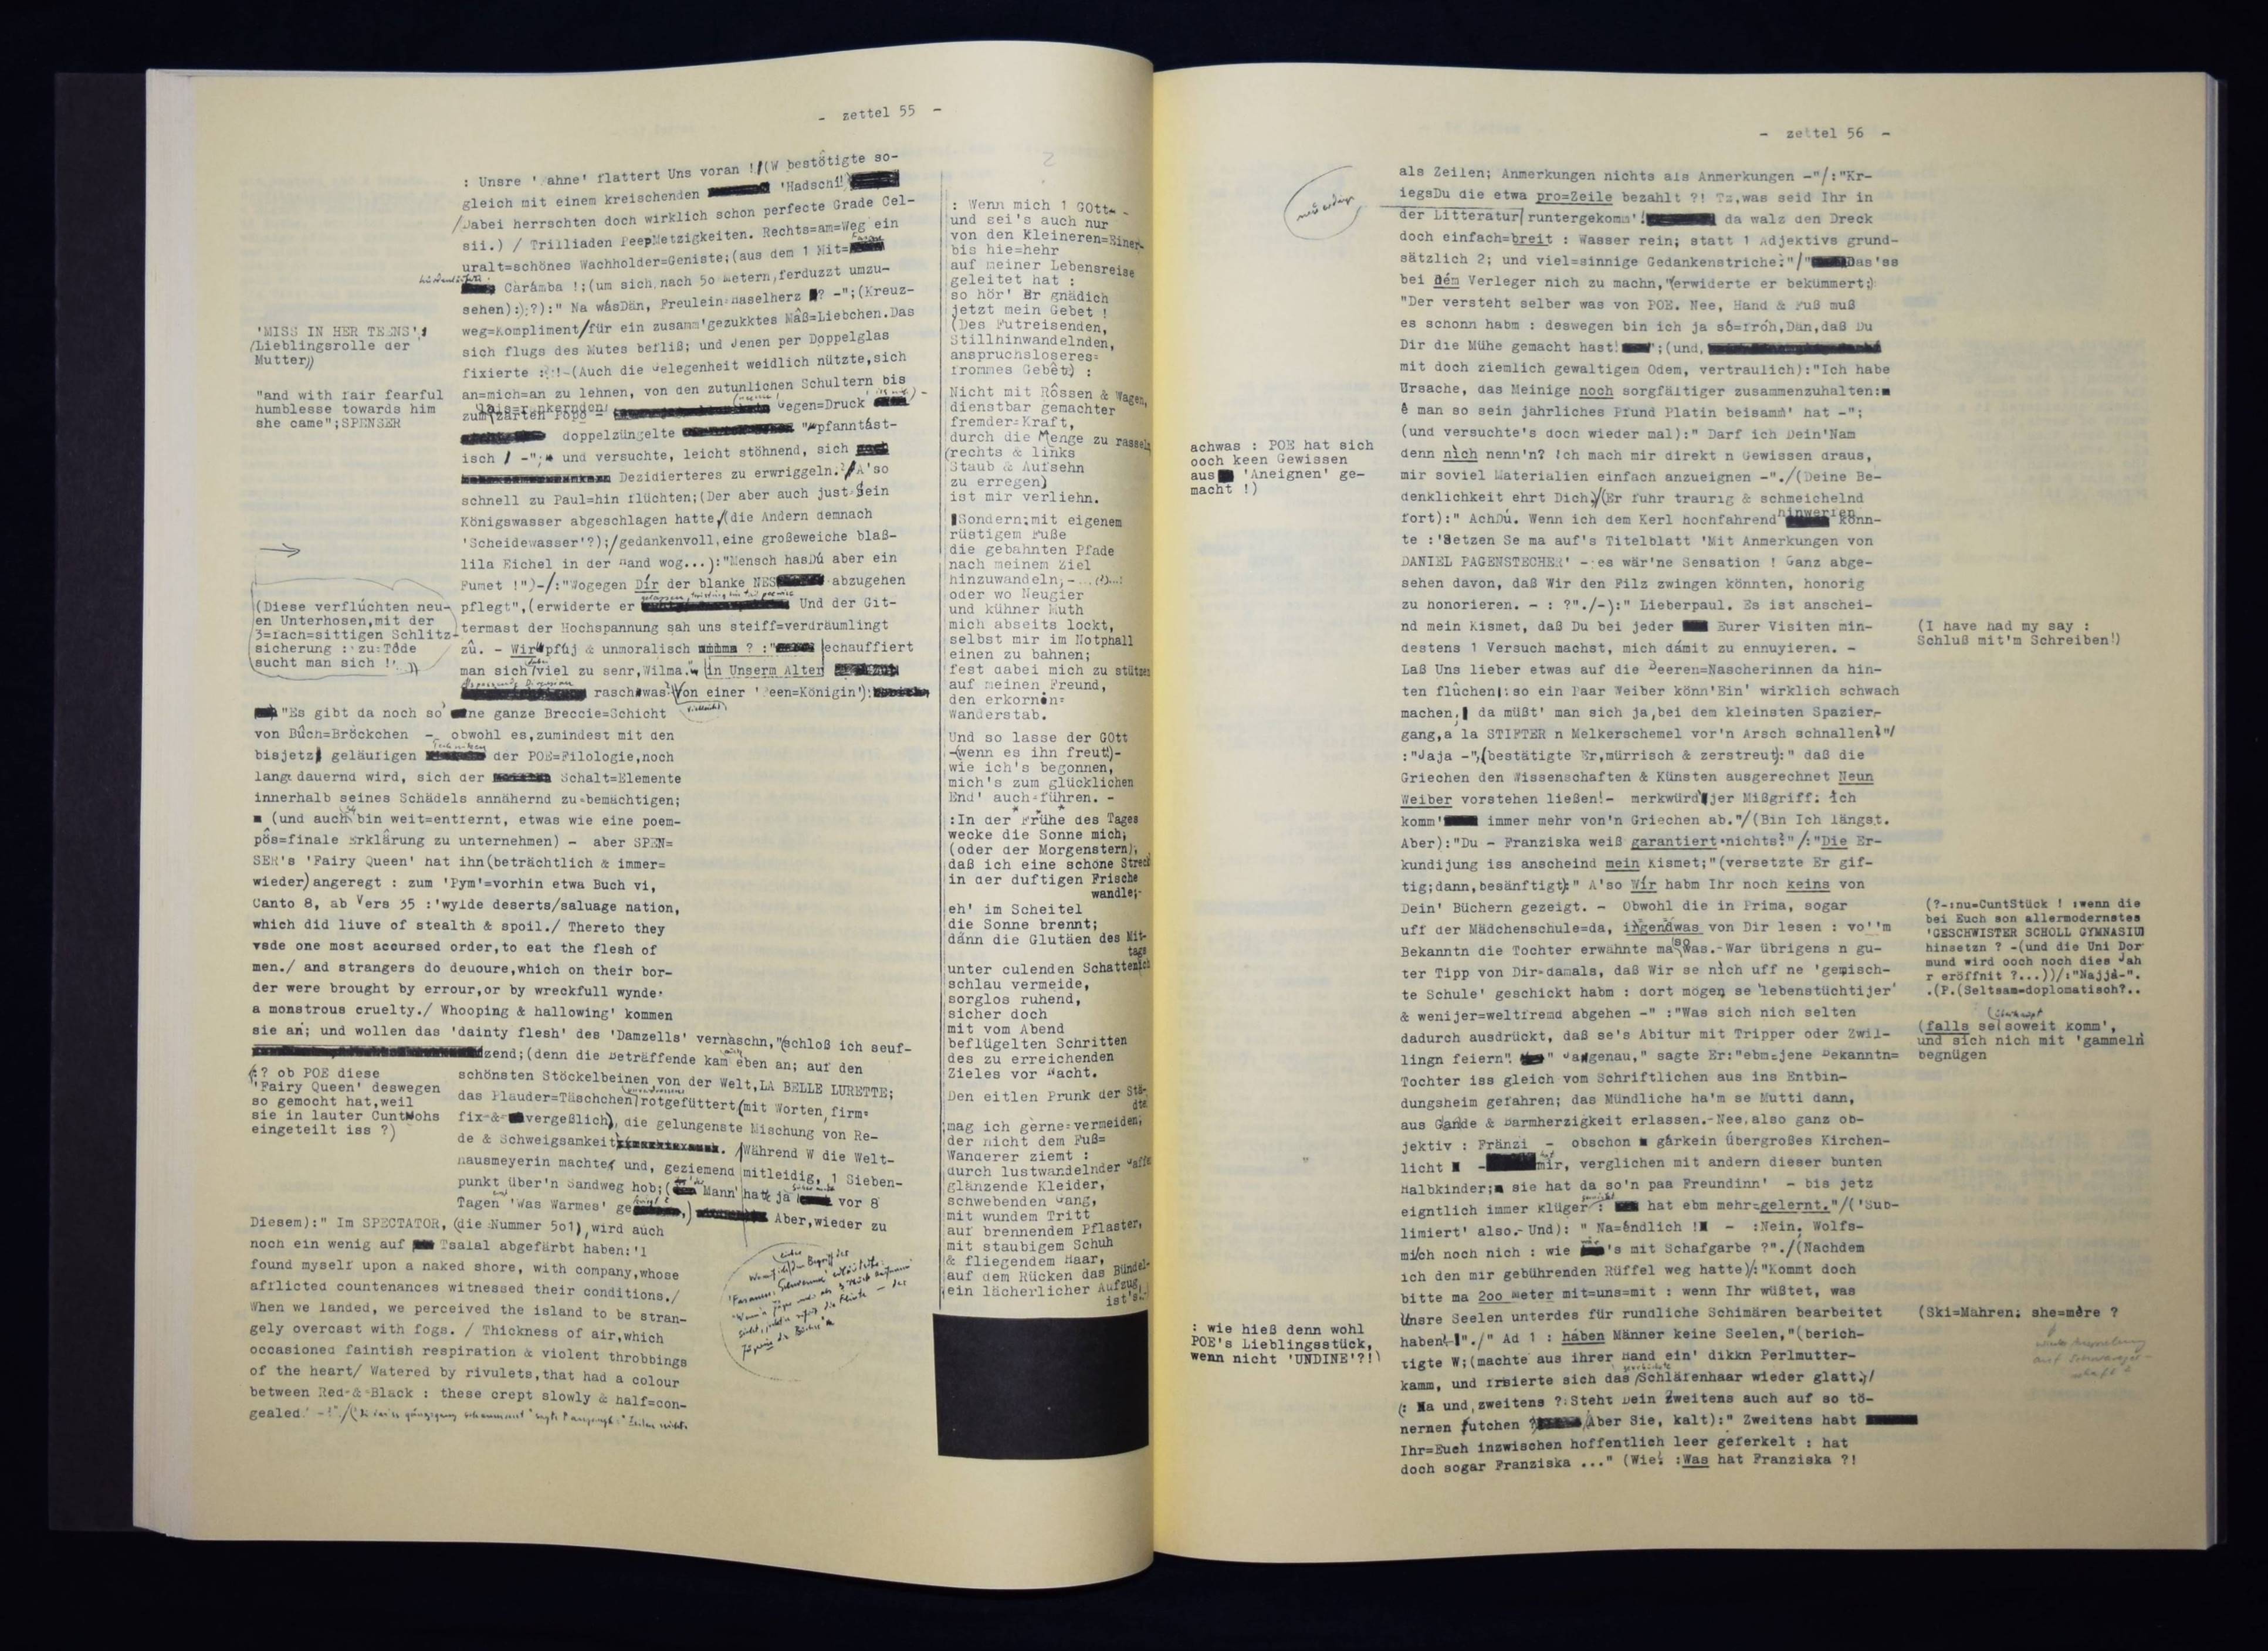 - zettel 55 -
: Unsre ' ahne' flattert Uns voran !/(W bestôtigte so-
gleich mit einem kreischenden 'Hadschi!
/Dabei herrschten doch wirklich schon perfecte Grade Cel-
sii.) / Trilliaden PeepMetzigkeiten. Rechts=am=Weg ein
uralt=schönes Wachholder=Geniste;(aus dem 1 Mit=
Carámba !;(um sich,nach 5o Metern,ferduzzt umzu-
sehen):);?):" Na wásDän, Freulein=Haselherz ? -";(Kreuz-
weg=Kompliment/für ein zusamm'gezukktes Mâß=Liebchen.Das
sich flugs des Mutes befliß; und Jenen per Doppelglas
fixierte :!-(Auch die Gelegenheit weidlich nützte,sich
an=mich=an zu lehnen, von den zutunlichen Schultern bis
zum zarten Popo - Gegen=Druck
doppelzüngelte "pfanntást-
isch / -"; und versuchte, leicht stöhnend, sich
Dezidierteres zu erwriggeln. A'so
schnell zu Paul=hin flüchten;(Der aber auch just Sein
Königswasser abgeschlagen hatte,/(die Andern demnach
'Scheidewasser'?);/gedankenvoll,eine großeweiche blaß-
lila Eichel in der Hand wog...):"Mensch hasDú aber ein
Fumet !")-/:"Wogegen Dír der blanke NES abzugehen
pflegt",(erwiderte er Und der Git-
termast der Hochspannung sah uns steiff=verdräumlingt
zû. - Wir pfúj & unmoralisch ? :" echauffiert
man sich viel zu sehr,Wilma." in Unserm Alter
rasch was von einer 'Feen=Königin'):
"Es gibt da noch so' ne ganze Breccie=Schicht
von Bûch=Bröckchen - obwohl es,zumindest mit den
bisjetz geläufigen der POE=Filologie,noch
lange dauernd wird, sich der Schalt=Elemente
innerhalb seines Schädels annähernd zu=bemächtigen;
(und auch bin weit=entfernt, etwas wie eine poem-
pôs=finale Erklârung zu unternehmen) - aber SPEN=
SER's 'Fairy Queen' hat ihn(beträchtlich & immer=
wieder)angeregt : zum 'Pym'=vorhin etwa Buch vi,
Canto 8, ab Vers 35 :'wylde deserts/saluage nation,
which did liuve of stealth & spoil./ Thereto they
vsde one most accursed order,to eat the flesh of
men./ and strangers do deuoure,which on their bor-
der were brought by errour,or by wreckfull wynde·
a monstrous cruelty./ Whooping & hallowing' kommen
sie an; und wollen das 'dainty flesh' des 'Damzells' vernàschn,"(schloß ich seuf-
zend;(denn die Beträffende kam eben an; auf den
schönsten Stöckelbeinen von der Welt,LA BELLE LURETTE;
das Plauder=Täschchen rotgefüttert(mit Worten,firm=
fix=& vergeßlich), die gelungenste Mischung von Re-
de & Schweigsamkeit. /Während W die Welt-
hausmeyerin machte und, geziemend mitleidig, 1 Sieben-
punkt über'n Sandweg hob;( Mann' hatt ja vor 8
Tagen 'Was Warmes' ge Aber,wieder zu
Diesem):" Im SPECTATOR, (die Nummer 5o1),wird auch
noch ein wenig auf Tsalal abgefärbt haben:'I
found myself upon a naked shore, with company,whose
afflicted countenances witnessed their conditions./
When we landed, we perceived the island to be stran-
gely overcast with fogs. / Thickness of air,which
occasioned faintish respiration & violent throbbings
of the heart/ Watered by rivulets,that had a colour
between Red=&=Black : these crept slowly & half=con-
gealed.'
'MISS IN HER TEENS';
/Lieblingsrolle der
Mutter))
"and with fair fearful
humblesse towards him
she came";SPENSER
(Diese verflúchten neu-
en Unterhosen,mit der
3=fach=sittigen Schlitz-
sicherung : zu=Tóde
sucht man sich !'
(:? ob POE diese
'Fairy Queen' deswegen
so gemocht hat,weil
sie in lauter Cunt ohs
eingeteilt iss ?)
: Wenn mich 1 GOtt-
und sei's auch nur
von den Kleineren=Einer-
bis hie=hehr
auf meiner Lebensreise
geleitet hat :
so hör' Er gnädich
jetzt mein Gebet !
(Des Futreisenden,
Stillhinwandelnden,
anspruchsloseres=
frommes Gebêt) :
Nicht mit Rôssen & Wagen,
dienstbar gemachter
fremder=Kraft,
durch die Menge zu rasseln
(rechts & links
Staub & Aufsehn
zu erregen)
ist mir verliehn.
Sondern:mit eigenem
rüstigem Fuße
die gebahnten Pfade
nach meinem Ziel
hinzuwandeln,-
oder wo Neugier
und kühner Muth
mich abseits lockt,
selbst mir im Notphall
einen zu bahnen;
fest dabei mich zu stützen
auf meinen Freund,
den erkornen=
Wanderstab.
Und so lasse der GOtt
-(wenn es ihn freut!)-
wie ich's begonnen,
mich's zum glücklichen
End' auch=führen. -
* * *
:In der Frühe des Tages
wecke die Sonne mich;
(oder der Morgenstern);
daß ich eine schöne Streck
in der duftigen Frische
wandle;-
eh' im Scheitel
die Sonne brennt;
dánn die Glutäen des Mit-
tags
unter culenden Schatten ich
schlau vermeide,
sorglos ruhend,
sicher doch
mit vom Abend
beflügelten Schritten
des zu erreichenden
Zieles vor Nacht.
Den eitlen Prunk der Stä-
dte
mag ich gerne=vermeiden,
der nicht dem Fuß=
Wanderer ziemt :
durch lustwandelnder Laffe
glänzende Kleider,
schwebenden Gang,
mit wundem Tritt
auf brennendem Pflaster,
mit staubigem Schuh
& fliegendem Haar,
auf dem Rücken das Bündel-
ein lächerlicher Aufzug
ist's.
- zettel 56 -
als Zeilen; Anmerkungen nichts als Anmerkungen -"/:"Kr-
iegsDu die etwa pro=Zeile bezahlt ?! Tz,was seid Ihr in
der Litteratur runtergekomm'! da walz den Dreck
doch einfach=breit : Wasser rein; statt 1 Adjektivs grund-
sätzlich 2; und viel=sinnige Gedankenstriche:"/" Das'ss
bei dém Verleger nich zu machn,"(erwiderte er bekümmert:)
"Der versteht selber was von POE. Nee, Hand & Fuß muß
es schonn habm : deswegen bin ich ja só=fróh,Dän,daß Du
Dir die Mühe gemacht hast! ";(und,
mit doch ziemlich gewaltigem Odem, vertraulich):"Ich habe
Ursache, das Meinige noch sorgfältiger zusammenzuhalten:
ê man so sein jährliches Pfund Platin beisamm' hat -";
(und versuchte's doch wieder mal):" Darf ich Dein'Nam
denn nìch nenn'n? Ich mach mir direkt n Gewissen draus,
mir soviel Materialien einfach anzueignen -"./(Deine Be-
denklichkeit ehrt Dich)/(Er fuhr traurig & schmeichelnd
fort):" AchDú. Wenn ich dem Kerl hochfahrend hinwerfen könn-
te :'Setzen Se ma auf's Titelblatt 'Mit Anmerkungen von
DANIEL PAGENSTECHER' - es wär'ne Sensation ! Ganz abge-
sehen davon, daß Wir den Filz zwingen könnten, honorig
zu honorieren. - : ?"./-):" Lieberpaul. Es ist anschei-
nd mein Kismet, daß Du bei jeder Eurer Visiten min-
destens 1 Versuch machst, mich dámit zu ennuyieren. -
Laß Uns lieber etwas auf die Beeren=Nascherinnen da hin-
ten flûchen : so ein Paar Weiber könn'Ein' wirklich schwach
machen, da müßt' man sich ja,bei dem kleinsten Spazier-
gang,a la STIFTER n Melkerschemel vor'n Arsch schnallen!"/
:"Jaja -",(bestätigte Er,mürrisch & zerstreut):" daß die
Griechen den Wissenschaften & Künsten ausgerechnet Neun
Weiber vorstehen ließen!- merkwürd'jer Mißgriff: ich
komm' immer mehr von'n Griechen ab."/(Bin Ich längst.
Aber):"Du - Franziska weiß garantiert nichts?"/:"Die Er-
kundijung iss anscheind mein Kismet;"(versetzte Er gif-
tig;dann,besänftigt):" A'so Wír habm Ihr noch keins von
Dein' Büchern gezeigt. - Obwohl die in Prima, sogar
uff der Mädchenschule=da, irgendwas von Dir lesen : vo''m
Bekanntn die Tochter erwähnte ma so was.-War übrigens n gu-
ter Tipp von Dir=damals, daß Wir se nìch uff ne 'gemisch-
te Schule' geschickt habm : dort mögen se 'lebenstüchtijer'
& wenijer=weltfremd abgehen -" :"Was sich nich selten
dadurch ausdrückt, daß se's Abitur mit Tripper oder Zwil-
lingn feiern". " Jangenau," sagte Er:"ebm=jene Bekanntn=
Tochter iss gleich vom Schriftlichen aus ins Entbin-
dungsheim gefahren; das Mündliche ha'm se Mutti dann,
aus Gande & Barmherzigkeit erlassen.-Nee,also ganz ob-
jektiv : Fränzi - obschon gârkein übergroßes Kirchen-
licht - mir, verglichen mit andern dieser bunten
Halbkinder; sie hat da so'n paa Freundinn' - bis jetz
eigntlich immer klüger : hat ebm mehr=gelernt."/('Sub-
limiert' also.- Und): " Na=éndlich ! - :Nein. Wolfs-
milch noch nich : wie 's mit Schafgarbe ?"./(Nachdem
ich den mir gebührenden Rüffel weg hatte)/:"Kommt doch
bitte ma 2oo Meter mit=uns=mit : wenn Ihr wüßtet, was
Unsre Seelen unterdes für rundliche Schimären bearbeitet
haben!"./" Ad 1 : háben Männer keine Seelen,"(berich-
tigte W;(machte aus ihrer Hand ein' dikkn Perlmutter-
kamm, und frisierte sich das Schläfenhaar wieder glatt)/
(: Na und,zweitens ?:Steht Dein Zweitens auch auf so tö-
nernen futchen ? Aber Sie, kalt):" Zweitens habt
Ihr=Euch inzwischen hoffentlich leer geferkelt : hat
doch sogar Franziska ..." (Wie! :Was hat Franziska ?!
achwas : POE hat sich
ooch keen Gewissen
aus 'Aneignen' ge-
macht !)
: wie hieß denn wohl
POE's Lieblingsstück,
wenn nicht 'UNDINE'?!)
(I have had my say :
Schluß mit'm Schreiben!)
(?-:nu=CuntStück ! :wenn die
bei Euch son allermodernstes
'GESCHWISTER SCHOLL GYMNASIU
hinsetzn ? -(und die Uni Dor
mund wird ooch noch dies Jah
r eröffnit ?...))/:"Najjà-".
.(P.(Seltsam=doplomatisch?..
(falls se soweit komm',
und sich nich mit 'gammeln'
begnügen
(Ski=Mahren: she=mère ?